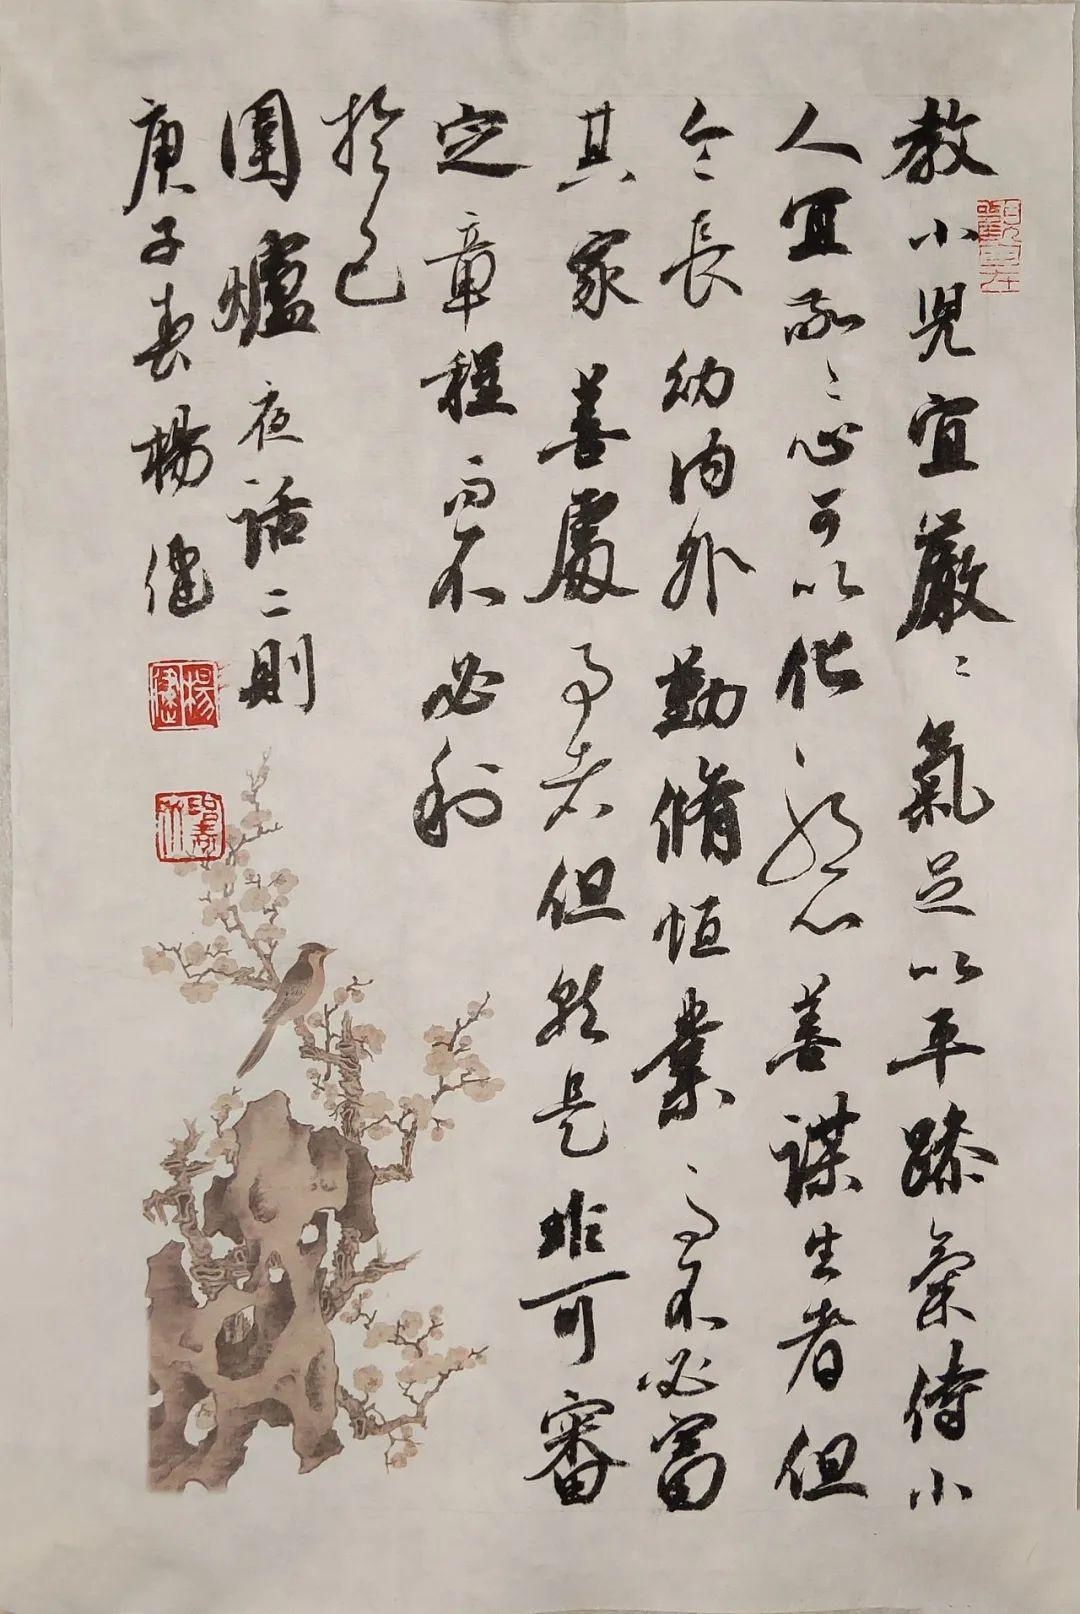 教小児宜嚴〻氣足以平躁氣待小
人宜敬〻心可以化邪心善謀生者但
令長幼内外勤脩恒業而不必富
其家善處事者但就是非可審
定章程而不必利
於己
圍爐夜話二則
庚子春楊健
楊健